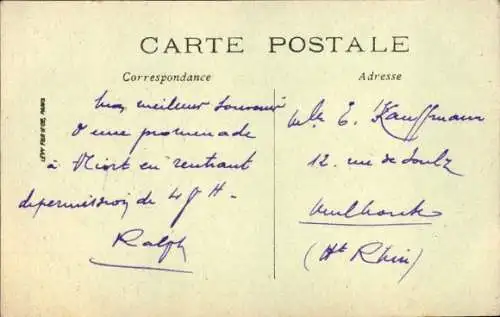 CARTE POSTALE
Correspondance
Adresse
LÉVY FILS & Cie, PARIS
Mon meilleur souvenir
d'une promenade
à Niort en rentrant
de permission de 48 H.
Ralph
Mlle E. Kauffmann
12. rue de Soultz
Mulhouse
(Ht Rhin)